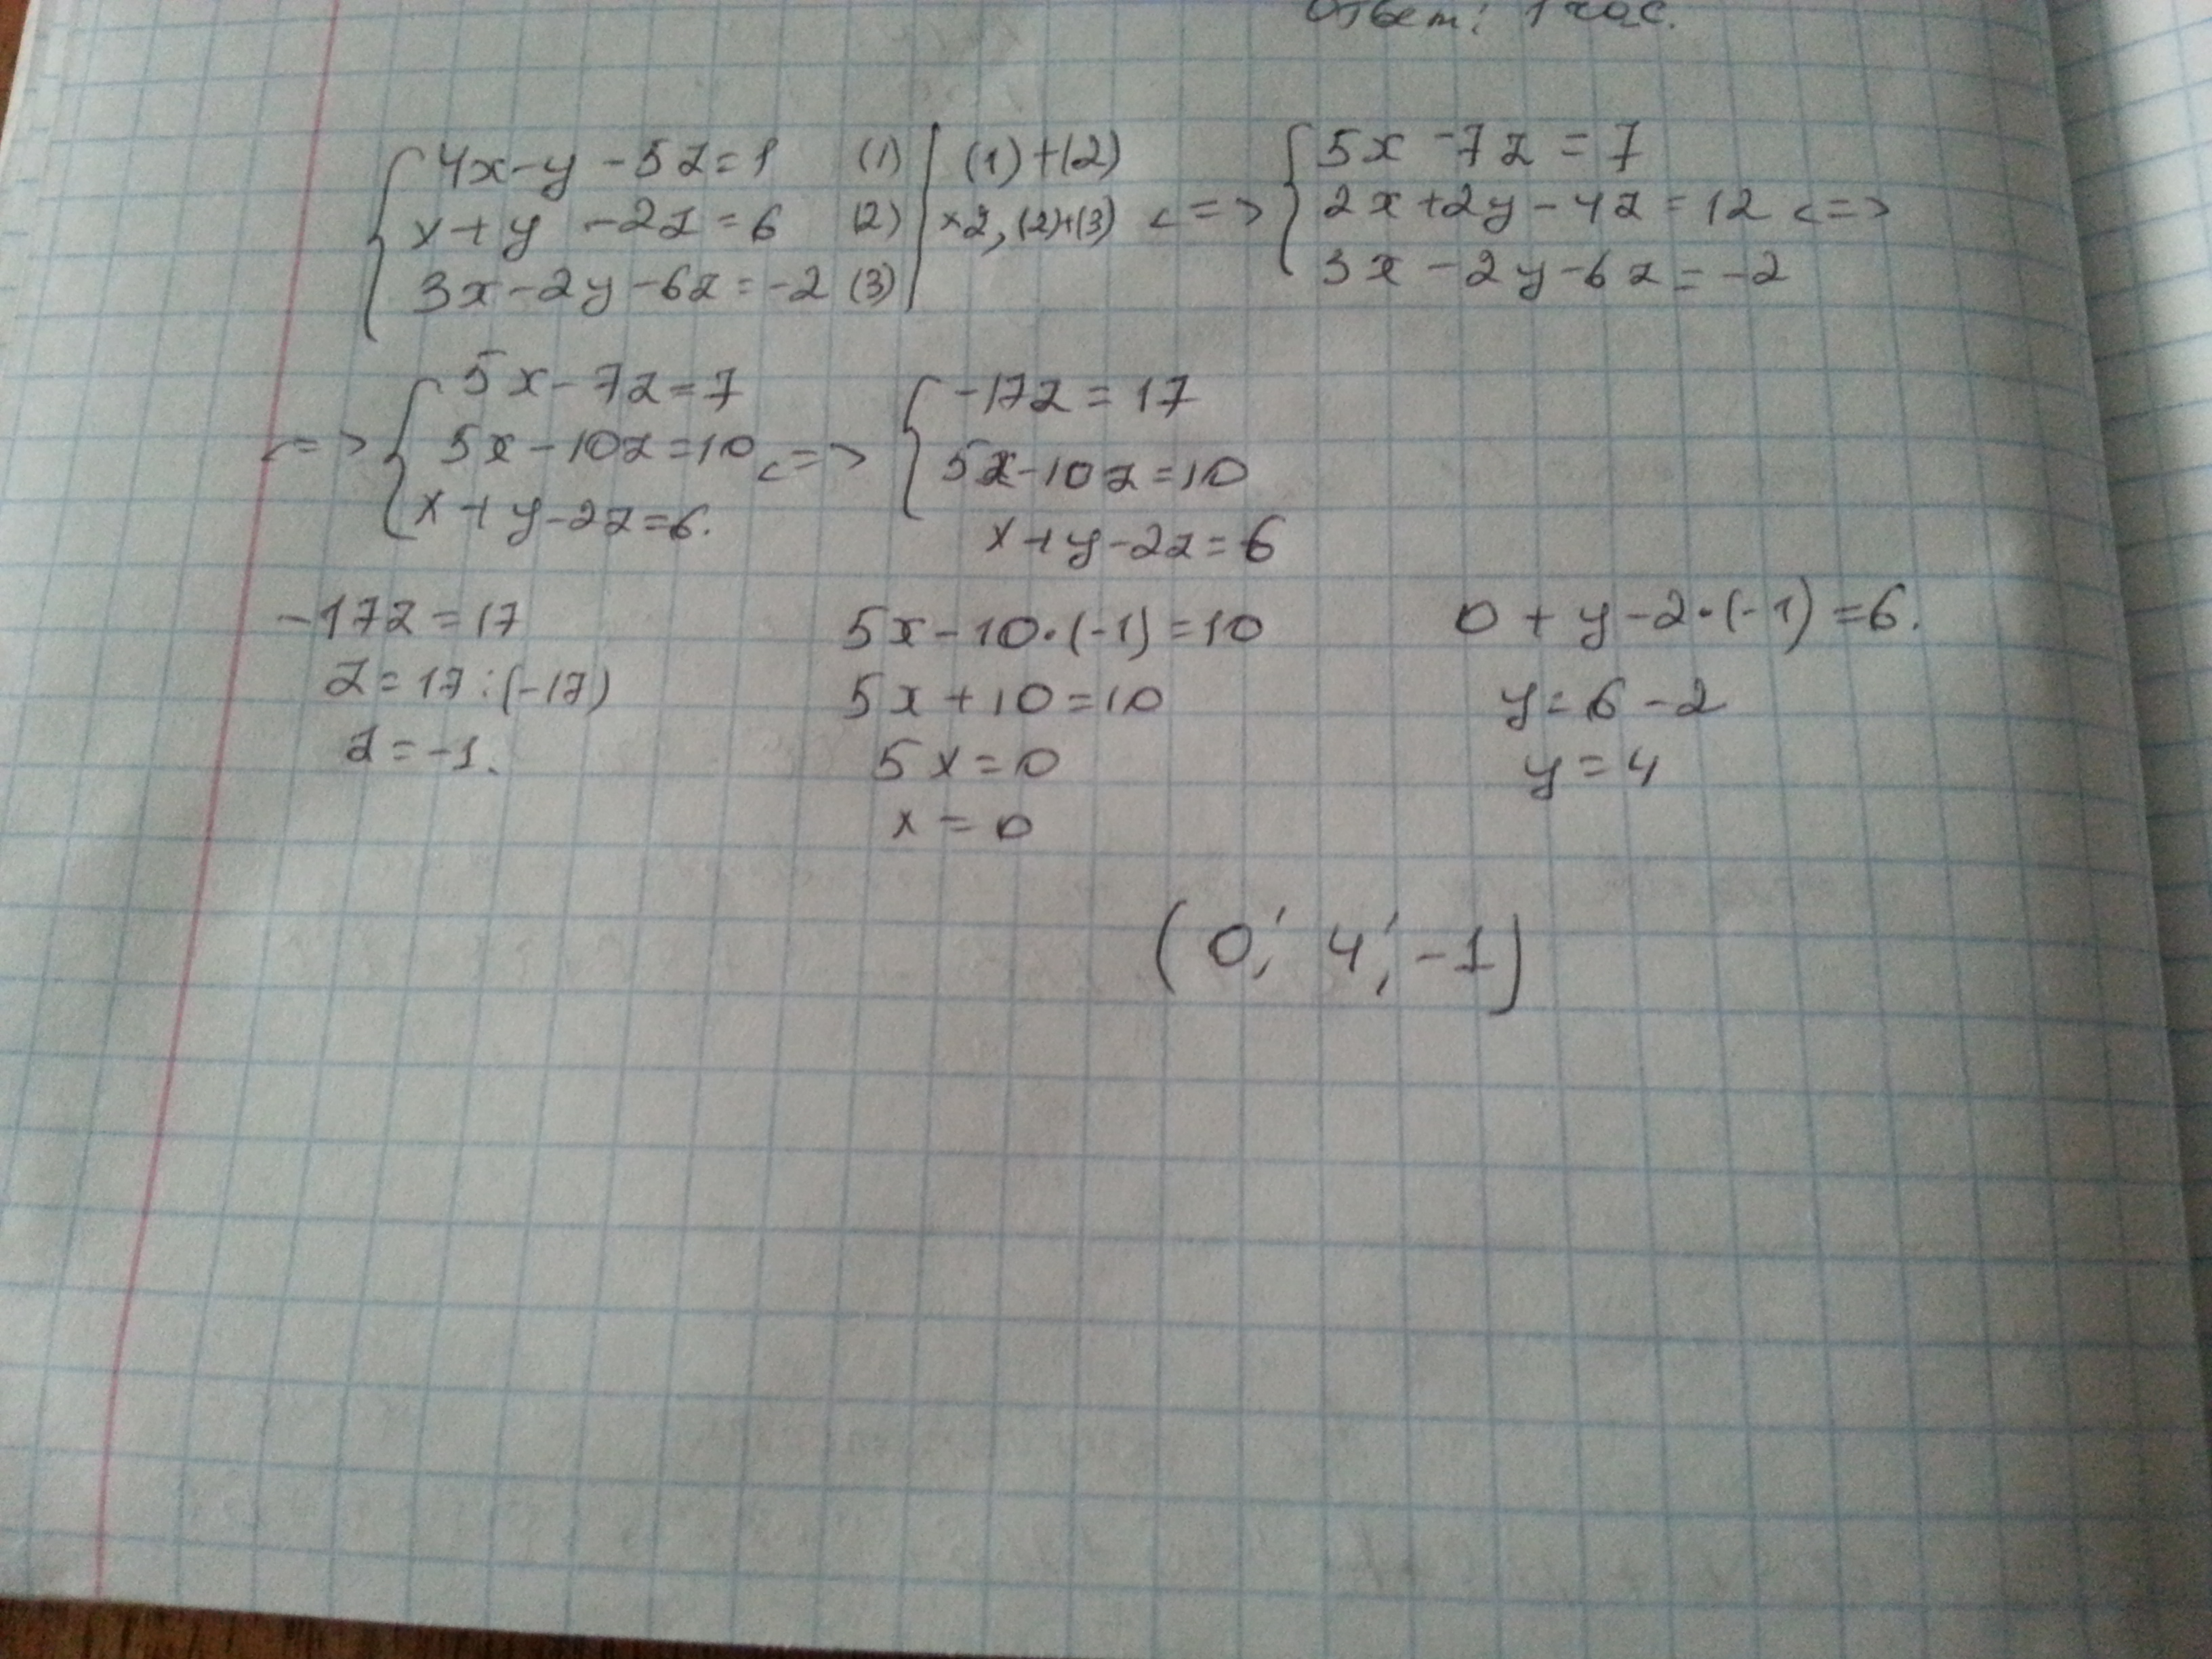 Ответ: 1 час.
4x-y-5z=1 (1) | (1)+(2)
x+y-2z=6 (2) | ×2, (2)+(3) <=>
3x-2y-6z=-2 (3)
5x-7z=7
2x+2y-4z=12 <=>
3x-2y-6z=-2
<=> 5x-7z=7
5x-10z=10 <=>
x+y-2z=6.
-17z=17
5x-10z=10
x+y-2z=6
-17z=17
z=17:(-17)
z=-1.
5x-10·(-1)=10
5x+10=10
5x=0
x=0
0+y-2·(-1)=6.
y=6-2
y=4
(0; 4; -1)